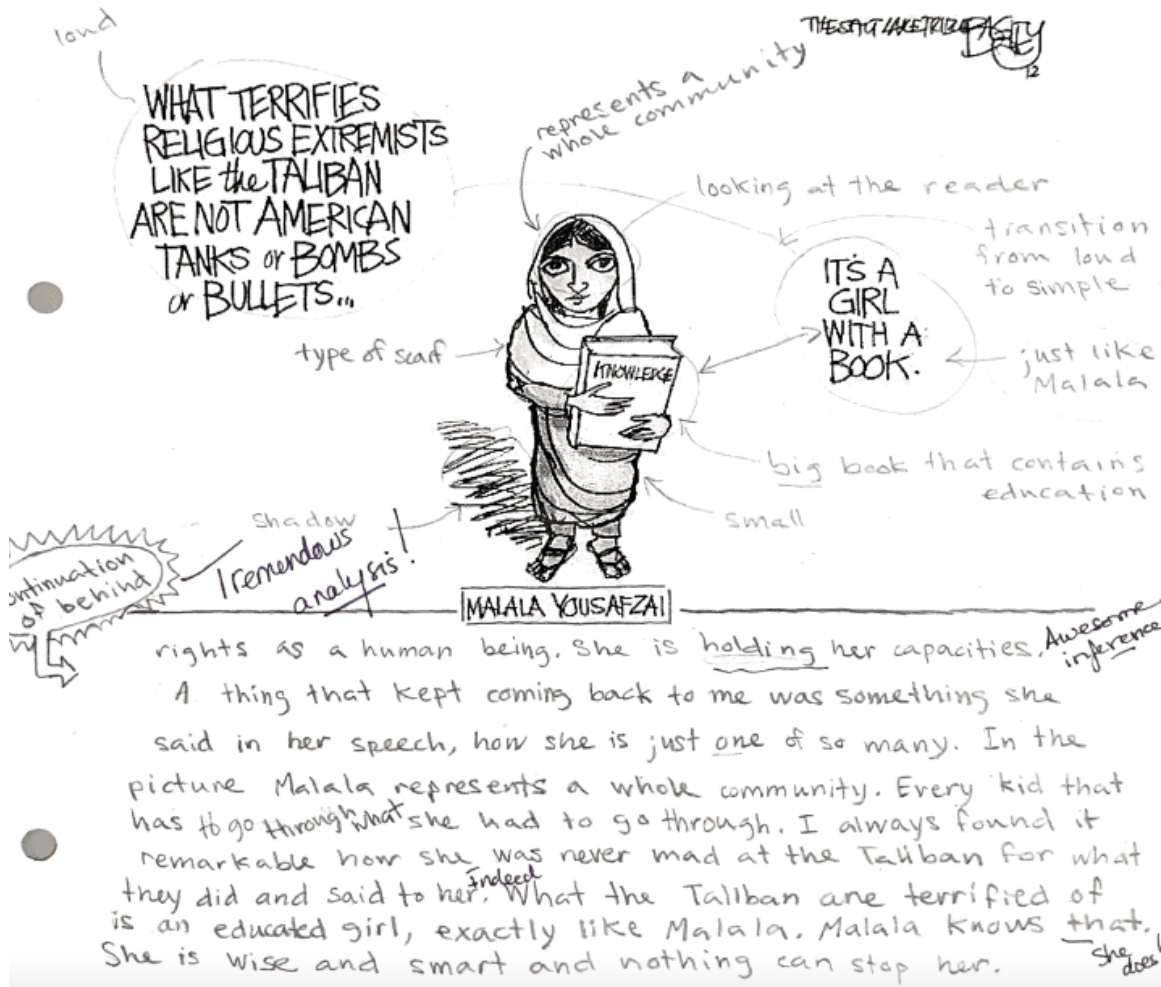 loud
THE SALT LAKE TRIBUNE
BAGLEY
12
WHAT TERRIFIES
RELIGIOUS EXTREMISTS
LIKE the TALIBAN
ARE NOT AMERICAN
TANKS or BOMBS
or BULLETS...
represents a
whole community
looking at the reader
transition
from loud
to simple
IT'S A
GIRL
WITH A
BOOK.
type of scarf
KNOWLEDGE
just like
Malala
big book that contains
education
small
shadow
Tremendous
analysis!
ontinuation
of behind
MALALA YOUSAFZAI
rights as a human being. She is holding her capacities.
Awesome
inference
A thing that kept coming back to me was something she
said in her speech, how she is just one of so many. In the
picture Malala represents a whole community. Every kid that
has to go through what she had to go through. I always found it
remarkable how she was never mad at the Taliban for what
they did and said to her. Indeed What the Taliban are terrified of
is an educated girl, exactly like Malala. Malala knows that.
She is wise and smart and nothing can stop her.
She
does!